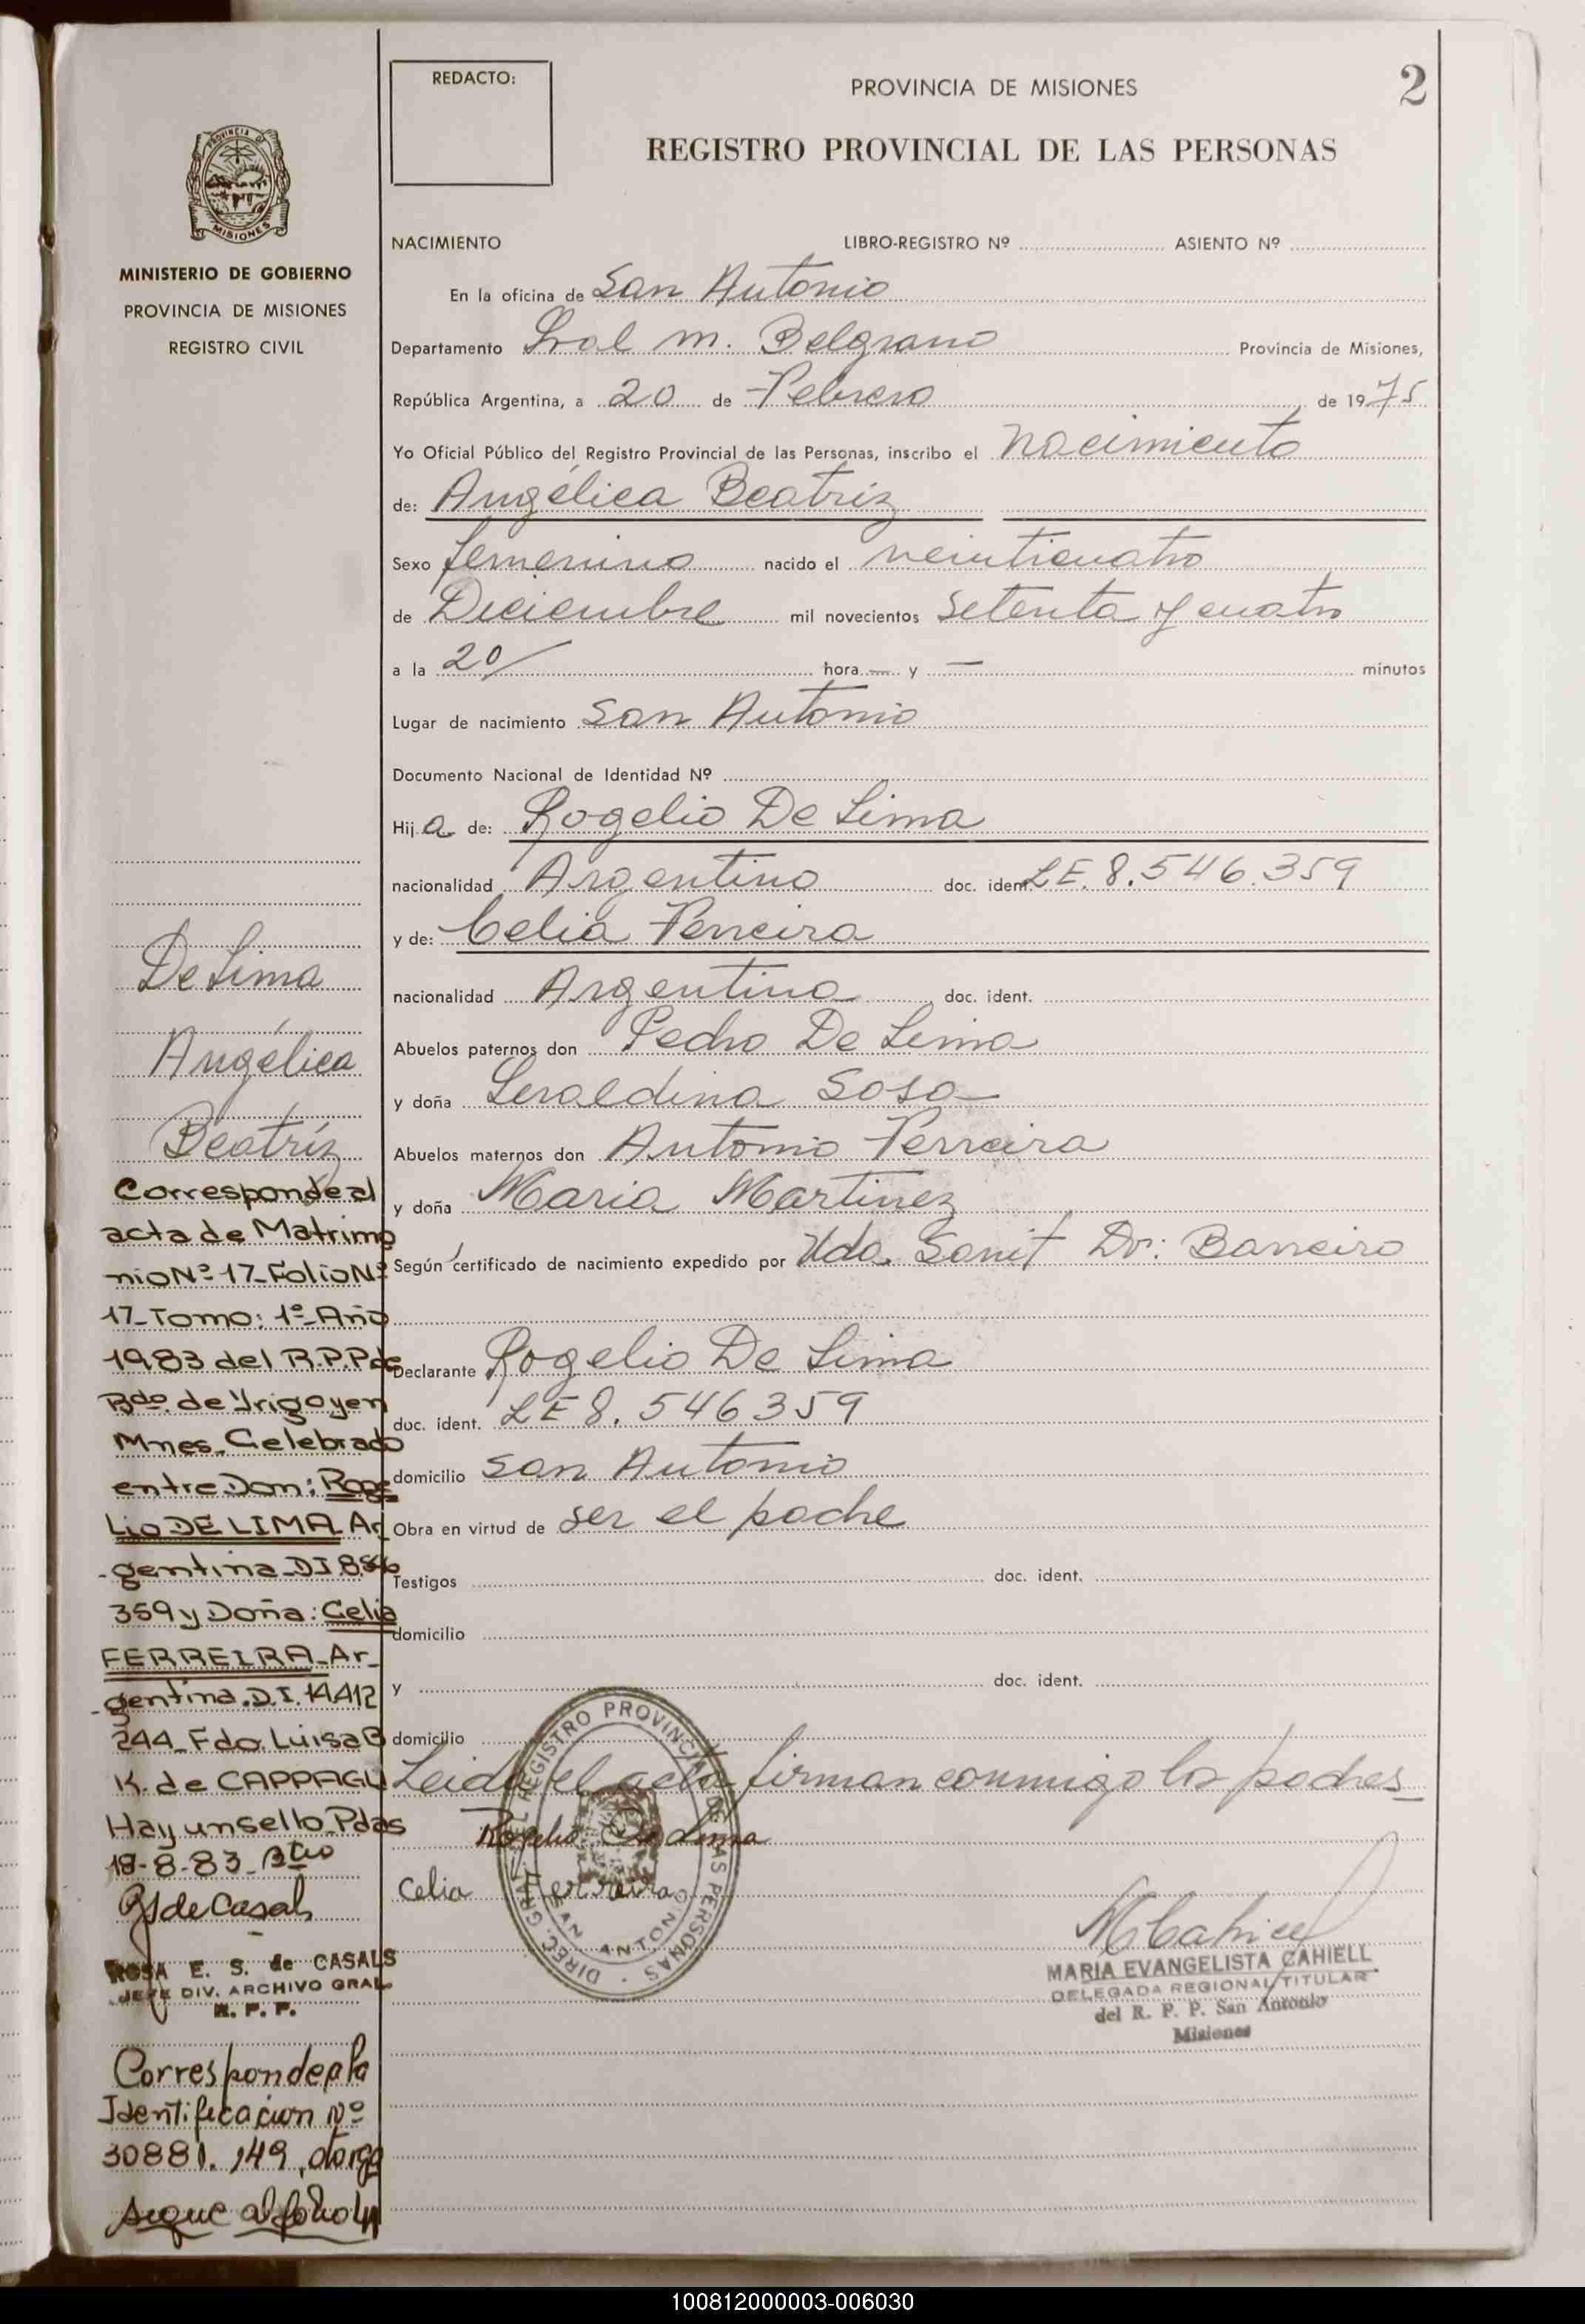 REDACTO:
PROVINCIA DE MISIONES
2
REGISTRO PROVINCIAL DE LAS PERSONAS
PROVINCIA DE MISIONES
MINISTERIO DE GOBIERNO
PROVINCIA DE MISIONES
REGISTRO CIVIL
NACIMIENTO LIBRO-REGISTRO Nº ASIENTO Nº
En la oficina de San Antonio
Departamento Gral M. Belgrano Provincia de Misiones,
República Argentina, a 20 de Febrero de 1975
Yo Oficial Público del Registro Provincial de las Personas, inscribo el nacimiento
de: Angélica Beatríz
Sexo femenino nacido el veinticuatro
de Diciembre mil novecientos setenta y cuatro
a la 20/ hora — y — minutos
Lugar de nacimiento San Antonio
Documento Nacional de Identidad Nº
Hija de: Rogelio De Lima
nacionalidad Argentino doc. ident. LE. 8.546.359
y de: Celia Ferreira
nacionalidad Argentina doc. ident.
Abuelos paternos don Pedro De Lima
y doña Geraldina Sosa
Abuelos maternos don Antonio Ferreira
y doña Maria Martinez
Según certificado de nacimiento expedido por Uda. Sanit Dr: Barreiro
Declarante Rogelio De Lima
doc. ident. LE 8.546359
domicilio San Antonio
Obra en virtud de ser el padre
Testigos doc. ident.
domicilio
y doc. ident.
domicilio
Leida el acta firman conmigo los padres
Rogelio De Lima
Celia Ferreira
DIREC. GRAL. DEL REGISTRO PROVINCIAL DE LAS PERSONAS
SAN ANTONIO
MARIA EVANGELISTA CAHIELL
DELEGADA REGIONAL TITULAR
del R. P. P. San Antonio
Misiones
De Lima
Angélica
Beatríz
Corresponde al
acta de Matrimo
nio Nº 17-Folio Nº
17-Tomo: 1º-Año
1983 del R.P.P de
Bdo. de Yrigoyen
Mnes. Celebrado
entre Don: Roge
lio DE LIMA Ar
-gentina-DI 8.546
359 y Doña: Celia
FERREIRA-Ar-
-gentina.D.I. 14.412
244-Fdo. Luisa B
K. de CAPPAGLI
Hay un sello. Pdas
18-8-83-
RSde Casals
ROSA E. S. de CASALS
JEFE DIV. ARCHIVO GRAL
R. P. P.
Corresponde a la
Identificacion Nº
30881.149, otorga
sigue al folio 4
100812000003-006030